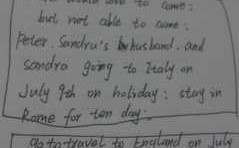 would love to come;
but not able to come;
Peter, Sandra's husband, and
Sandra going to Italy on
July 9th on holiday; stay in
Rome for ten day;
go to travel to England on July